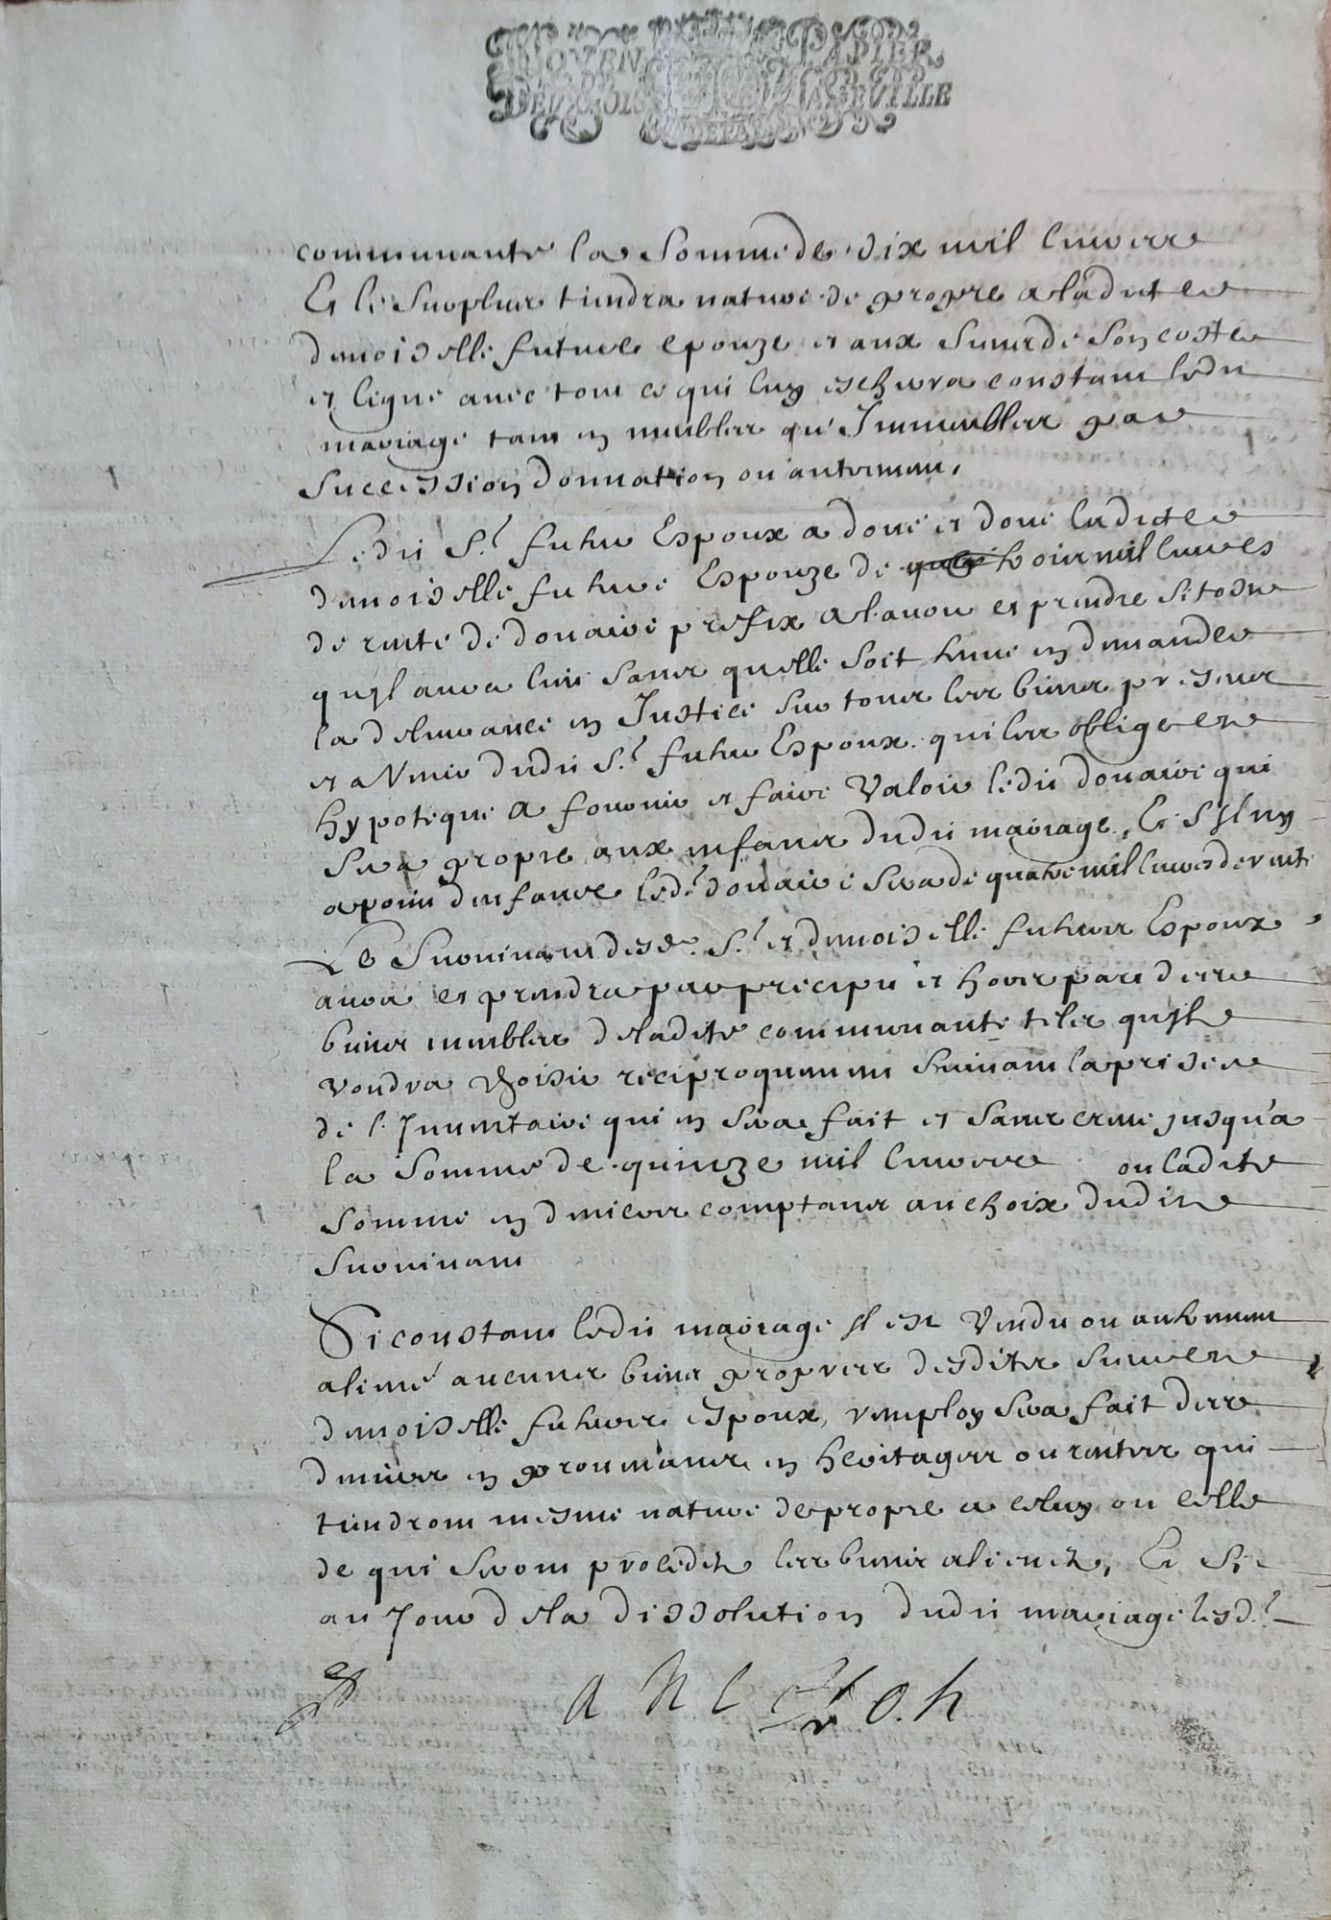 MOYEN PAPIER
DEUX SOLS LA FEUILLE
communauté la Somme de dix mil livres
Et le Surplus tiendra nature de propre a ladicte
demoiselle future epouze et aux Siens de Son costé
et ligne avec tout ce qui luy eschera constant ledit
mariage tant en meubles qu'Immeubles par
Succession donnation ou autrement.
Ledit S.r futur Espoux a doué et doue ladicte
demoiselle future Espouze de trois mil livres
de rente de douaire prefix a l'avoir et prendre Sitost
qu'il aura lieu Sans quelle Soit tenue en demander
la delivrance en Justice Sur tous les biens presens
et a Venir dudit S.r futur Espoux qui les oblige et
hypoteque a fournir et faire Valoir ledit douaire qui
Sera propre aux enfans dudit mariage, Et S'il ny
a point d'enfans led.t douaire Sera de quatre mil livres de rente
Le Survivant desd. S.r et demoiselle futurs Espoux
aura et prendra par preciput et hors part des
biens meubles de ladite communauté tels qu'il
voudra choisir reciproquement Suivant la prisée
de l'Inventaire qui en Sera fait et Sans crue jusqu'a
la Somme de quinze mil livres ou ladite
Somme en deniers comptans au choix dudit
Survivant
Si constant ledit mariage il est Vendu ou autrement
aliené aucuns biens propres desdits Sieur et
demoiselle futurs espoux, remploy Sera fait des
deniers en provenans en heritages ou rentes qui
tiendront mesme nature de propre a celuy ou celle
de qui Seront procedez les biens alienez, Et Si
au Jour de la dissolution dudit mariage lesd.t